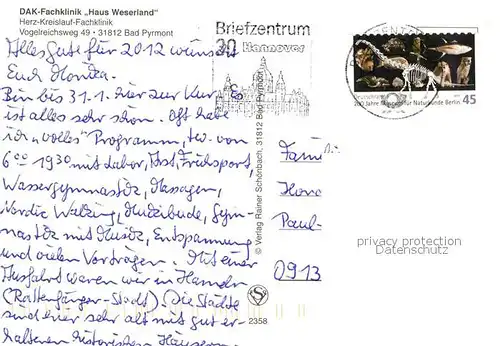 DAK-Fachklinik „Haus Weserland"
Herz-Kreislauf-Fachklinik
Vogelreichsweg 49 • 31812 Bad Pyrmont
Alles Gute für 2012 wünscht
Euch Monika.
Bin bis 31.1. hier zur Kur
ist alles sehr schön. Oft habe
ich „volles" Programm, tw. von
6⁰⁰ 19³⁰ mit Labor, Frühsport,
Wassergymnastik, Massagen,
Nordic Walking, Gym-
nastik mit Musik, Entspannung
und vielen Vorträgen. Mit einer
Ausfahrt waren wir in Hameln
(Rattenfänger-Stadt). Die Städte
sind hier sehr alt mit gut er-
haltenen historischen Häusern
Briefzentrum
30
Hannover
© Verlag Rainer Schönbach, 31812 Bad Pyrmont
2358
Deutschland
200 Jahre Museum für Naturkunde Berlin
45
Fami
Paul-
0913
privacy protection
Datenschutz